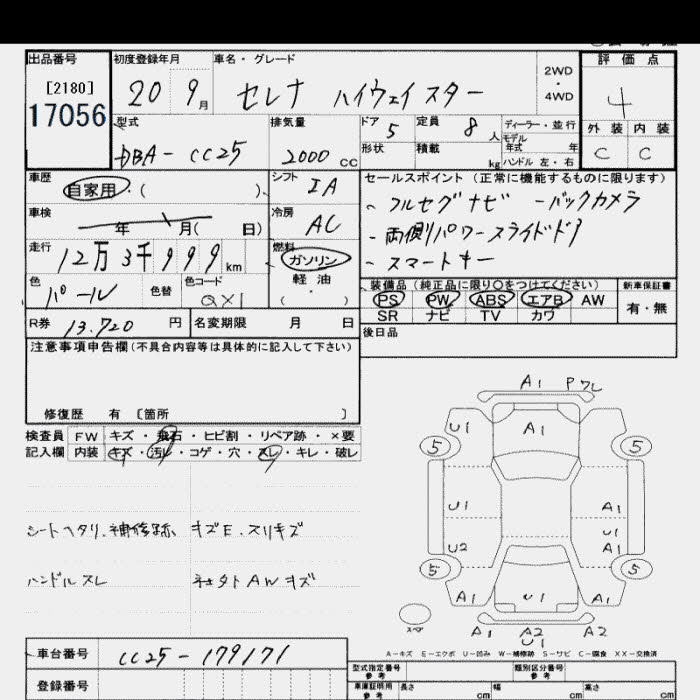 出品番号 初度登録年月 車名・グレード 評価点
[2180]
17056
20 9月 セレナ ハイウェイスター 2WD・4WD 4
型式 排気量 ドア 5 定員 8人 ディーラー・並行 外装 内装
DBA-CC25 2000cc 形状 積載 kg モデル年式 年 ハンドル 左・右 C C
車歴 自家用・( ) シフト IA セールスポイント(正常に機能するものに限ります)
車検 年 月( 日) 冷房 AC - フルセグナビ -バックカメラ
- 両側パワースライドドア
走行 12万3千999km 燃料 ガソリン - スマートキー
軽油
( ・ )
色 パール 色替 色コード QX1 装備品(純正品に限り○をつけてください) 新車保証書
PS PW ABS エアB AW 有・無
SR ナビ TV カワ
R券 13.720円 名変期限 月 日 後日品
注意事項申告欄(不具合内容等は具体的に記入して下さい)
修復歴 有 [箇所 ]
検査員 FW キズ・飛石・ヒビ割・リペア跡・×要
記入欄 内装 キズ・汚れ・コゲ・穴・スレ・キレ・破レ
シートヘタリ、補修跡 キズE.スリキズ
ハンドルスレ ネタトAWキズ
A1 Pワレ
U1 A1
5 5
U1 A1
U1
U2 A1
5 5
A1 U1 A1
スペア A1 A2 A2
U1
A-キズ E-エクボ U-凹み W-補修跡 S-サビ C-腐食 XX-交換済
車台番号 CC25-179171
型式指定番号 参考 類別区分番号 参考
登録番号 車庫証明用 参考 長さ cm 幅 cm 高さ cm